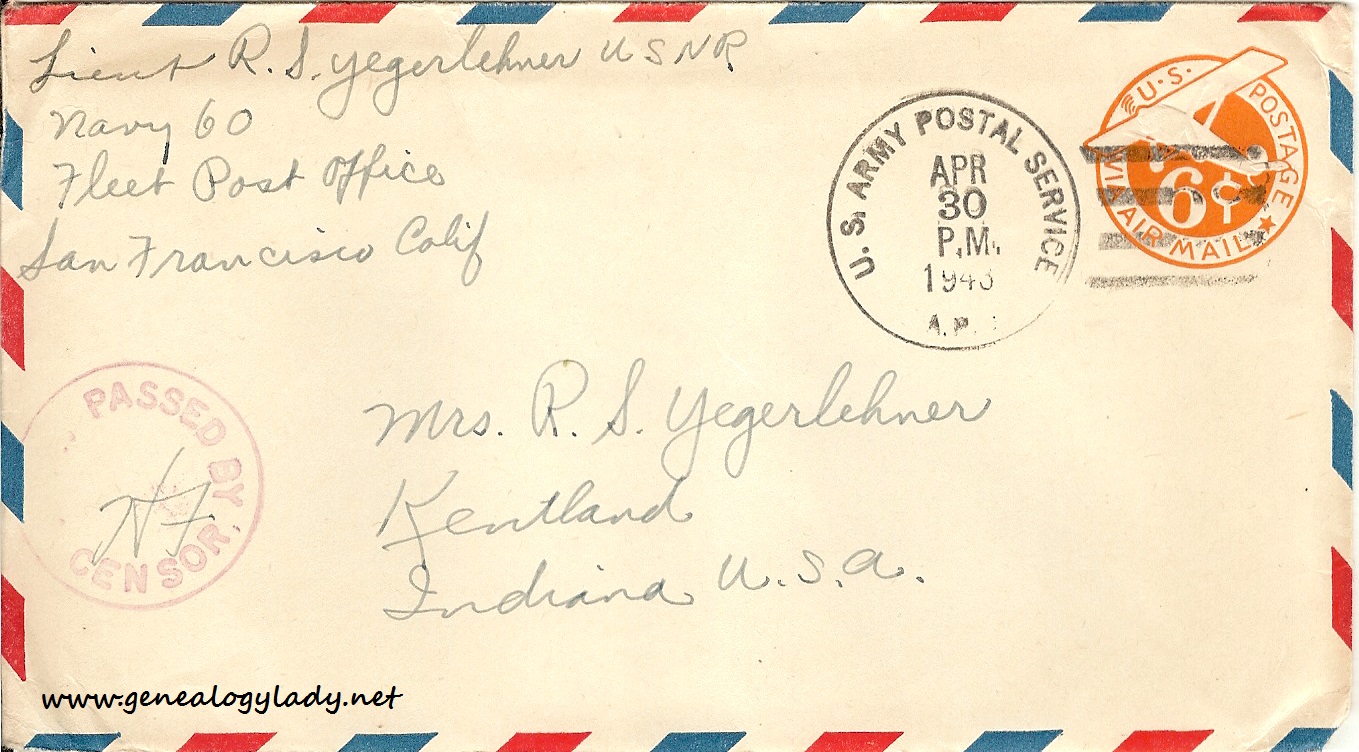 Lieut R. S. Yegerlehner USNR
Navy 60
Fleet Post Office
San Francisco Calif
U.S. ARMY POSTAL SERVICE
APR
30
P.M.
1943
A.P.
U.S. POSTAGE
6¢
VIA AIR MAIL
Mrs. R. S. Yegerlehner
Kentland
Indiana U.S.A.
PASSED BY
CENSOR
www.genealogylady.net